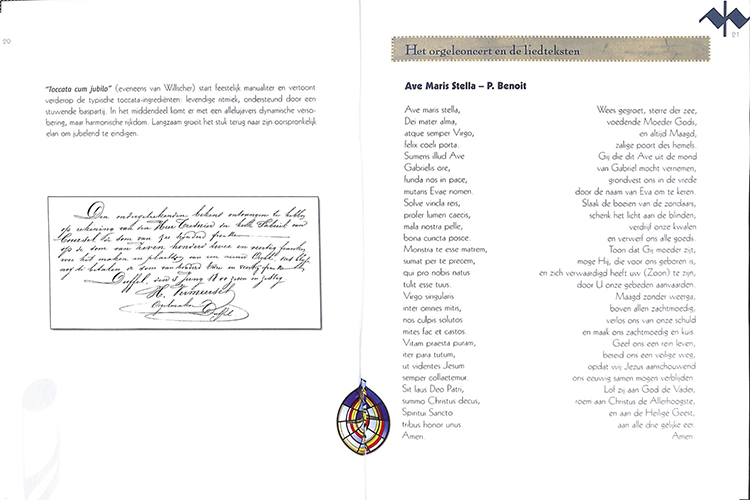 20
"Toccata cum jubilo" (eveneens van Willscher) start feestelijk manualiter en vertoont
verderop de typische toccata-ingrediënten: levendige ritmiek, ondersteund door een
stuwende baspartij. In het middendeel komt er met een allelujavers dynamische verso-
bering, maar harmonische rijkdom. Langzaam groeit het stuk terug naar zijn oorspronkelijk
elan om jubelend te eindigen.
Den ondergeteekenden bekent ontvangen te hebben
op rekening van den Heer Tresorier der kerk Fabriek van
de som van
op de som van zeven honderd twee en veertig franken
over het maken en plaatsen van een nieuw Orgel
nog te betalen de som van honderd
Duffel, den 8 Juny 18
H. Vermeersch
Orgelmaker
Duffel
21
Het orgelconcert en de liedteksten
Ave Maris Stella – P. Benoit
Ave maris stella,
Dei mater alma,
atque semper Virgo,
felix coeli porta.
Sumens illud Ave
Gabrielis ore,
funda nos in pace,
mutans Evae nomen.
Solve vincla reis,
profer lumen caecis,
mala nostra pelle,
bona cuncta posce.
Monstra te esse matrem,
sumat per te precem,
qui pro nobis natus
tulit esse tuus.
Virgo singularis
inter omnes mitis,
nos culpis solutos
mites fac et castos.
Vitam praesta puram,
iter para tutum,
ut videntes Jesum
semper collaetemur.
Sit laus Deo Patri,
summo Christus decus,
Spiritui Sancto
tribus honor unus.
Amen.
Wees gegroet, sterre der zee,
voedende Moeder Gods,
en altijd Maagd,
zalige poort des hemels.
Gij die dit Ave uit de mond
van Gabriel mocht vernemen,
grondvest ons in de vrede
door de naam van Eva om te keren.
Slaak de boeien van de zondaars,
schenk het licht aan de blinden,
verdrijf onze kwalen
en verwerf ons alle goeds.
Toon dat Gij moeder zijt,
moge Hij, die voor ons geboren is,
en zich verwaardigd heeft uw (Zoon) te zijn,
door U onze gebeden aanvaarden.
Maagd zonder weerga,
boven allen zachtmoedig,
verlos ons van onze schuld
en maak ons zachtmoedig en kuis.
Geef ons een rein leven,
bereid ons een veilige weg,
opdat wij Jezus aanschouwend
ons eeuwig samen mogen verblijden.
Lof zij aan God de Vader,
roem aan Christus de Allerhoogste,
en aan de Heilige Geest,
aan alle drie gelijke eer.
Amen.